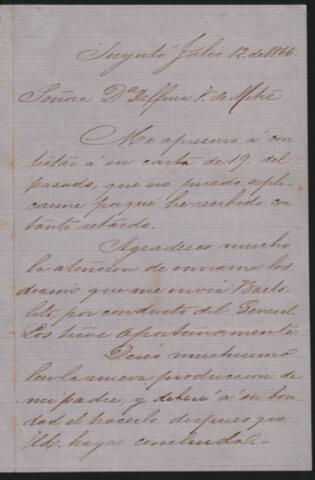 Tuyutí Julio 12. de 1866.
Señora Da. Delfina V. de Mitre
Me apresuro á con
testar á su carta de 19. del
pasado, que no puedo espli
carme porqué he recibido con
tanto retardo.
Agradesco mucho
la atencion de enviarme los
diarios que me envia Barto
lito, por conducto del General.
Los tuve oportunamente
Deseo muchisimo
leer la nueva produccion de
mi padre, y deberé á su bon
dad el hacerlo despues que
Ud. haya concluido.-